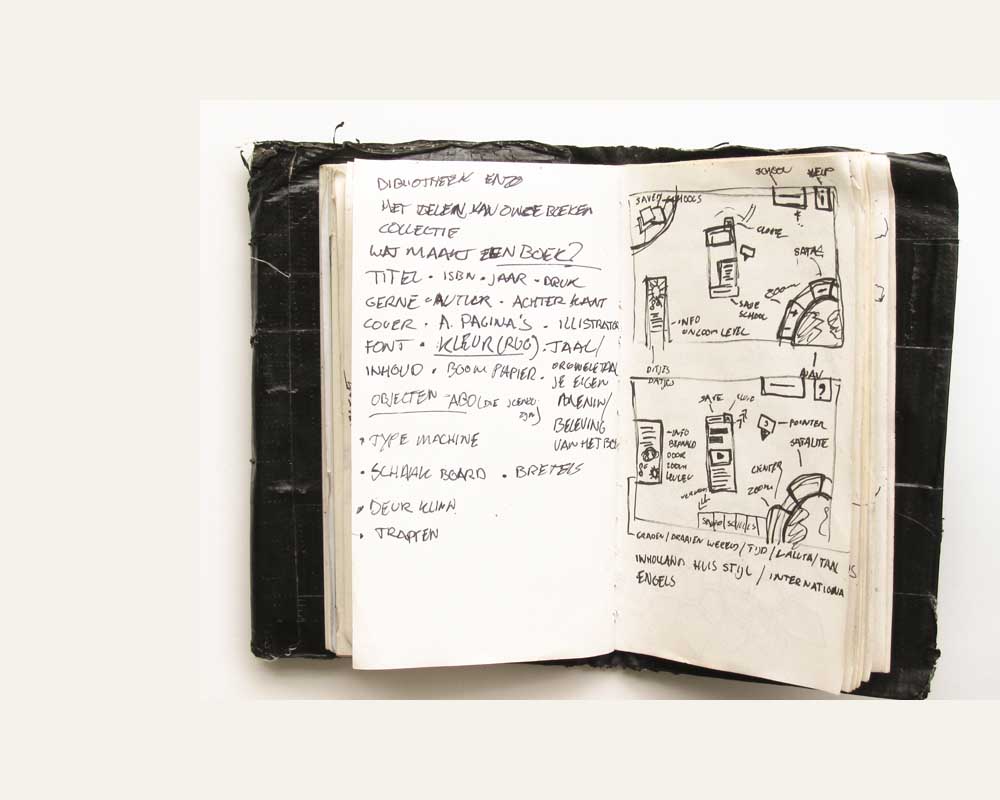 BIBLIOTHEEK ENZO
HET DELEN VAN ONZE BOEKEN
COLLECTIE
WAT MAAKT EEN BOEK?
TITEL · ISBN · JAAR · DRUK
GERNE · AUTEUR · ACHTER KANT
COVER · A. PAGINA'S · ILLUSTRATOR
FONT · KLEUR (RUG) · TAAL/
INHOUD · BOOM PAPIER ·
JE EIGEN
OBJECTEN
BELEVING
VAN HET BO
· TYPE MACHINE
· SCHAAK BOARD · BRETELS
· DEUR KLINK
· TRAPPEN
SCHOOL HELP
SAVED SCHOOLS
CLOSE
ZOOM
SAVE
SCHOOL
-INFO
ON ZOOM LEVEL
DITJES
DATJES
SAVE
-POINTER
-INFO
BEPAALD
DOOR
ZOOM
LEVEL
SATALITE
CENTER
ZOOM
SAVED SCHOOLS
GRADEN/DRAAIEN WERELD/TIJD/
INHOLLAND HUIS STIJL / INTERNATIONA
ENGELS